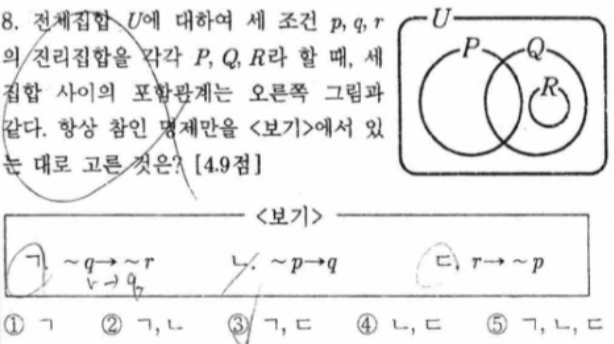 8. 전체집합 U에 대하여 세 조건 p, q, r
의 진리집합을 각각 P, Q, R라 할 때, 세
집합 사이의 포함관계는 오른쪽 그림과
같다. 항상 참인 명제만을 <보기>에서 있
는 대로 고른 것은? [4.9점]
U
P Q
R
<보기>
ㄱ. ~q→~r ㄴ. ~p→q ㄷ. r→~p
r→q
① ㄱ ② ㄱ, ㄴ ③ ㄱ, ㄷ ④ ㄴ, ㄷ ⑤ ㄱ, ㄴ, ㄷ